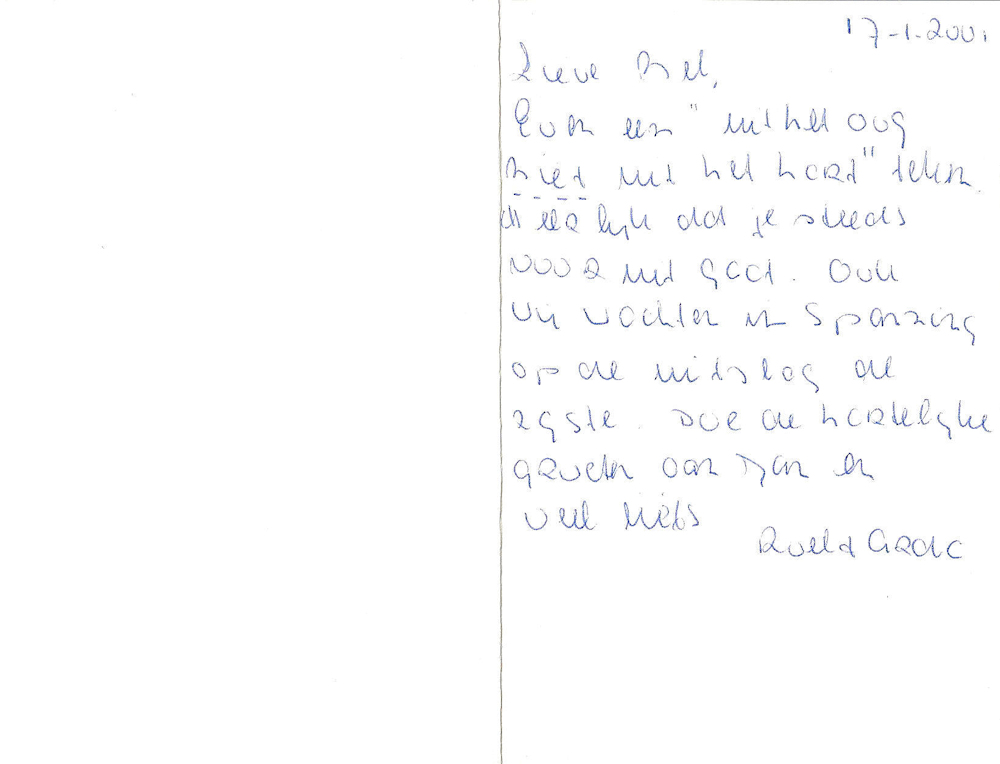 17-1-2001
Lieve Bel,
Even een "uit het oog
niet uit het hart" teken.
Heerlijk dat je steeds
vooruit gaat. Ook
wij wachten in spanning
op de uitslag de
. Doe de hartelijke
groeten aan Jan en
veel liefs
Roel +